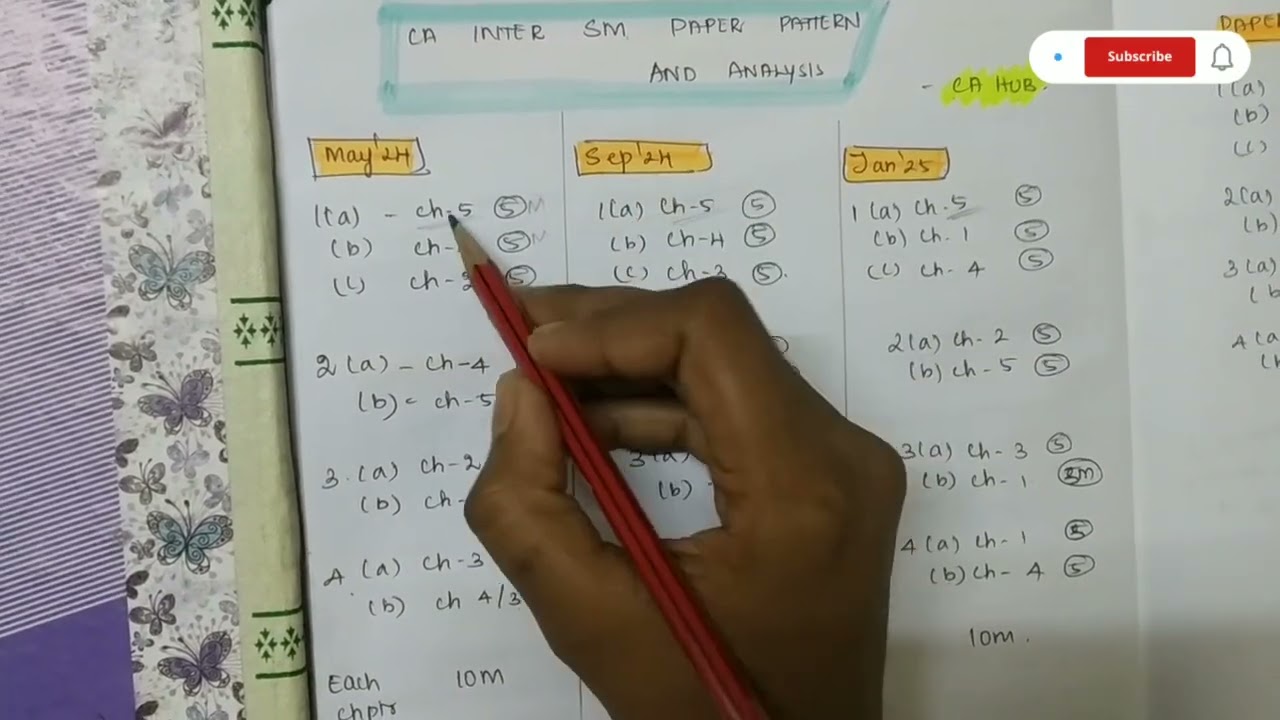 CA INTER SM PAPER PATTERN
AND ANALYSIS
- CA HUB.
Subscribe
May'24
1(a) - ch-5 5M
(b) ch- 5M
(c) ch- 5
2(a) - ch-4
(b) = ch-5
3. (a) ch-2
(b) ch-
4. (a) ch-3
(b) ch 4/3
Each 10M
chptr
Sep'24
1(a) ch-5 5
(b) ch-4 5
(c) ch-3 5.
3(a)
(b)
Jan'25
1(a) ch.5 5
(b) ch.1 5
(c) ch-4 5
2(a) ch-2 5
(b) ch-5 5
3(a) ch-3 5
(b) ch-1
4(a) ch-1 5
(b) ch-4 5
10m.
1(a)
(b)
(c)
2(a)
(b)
3(a)